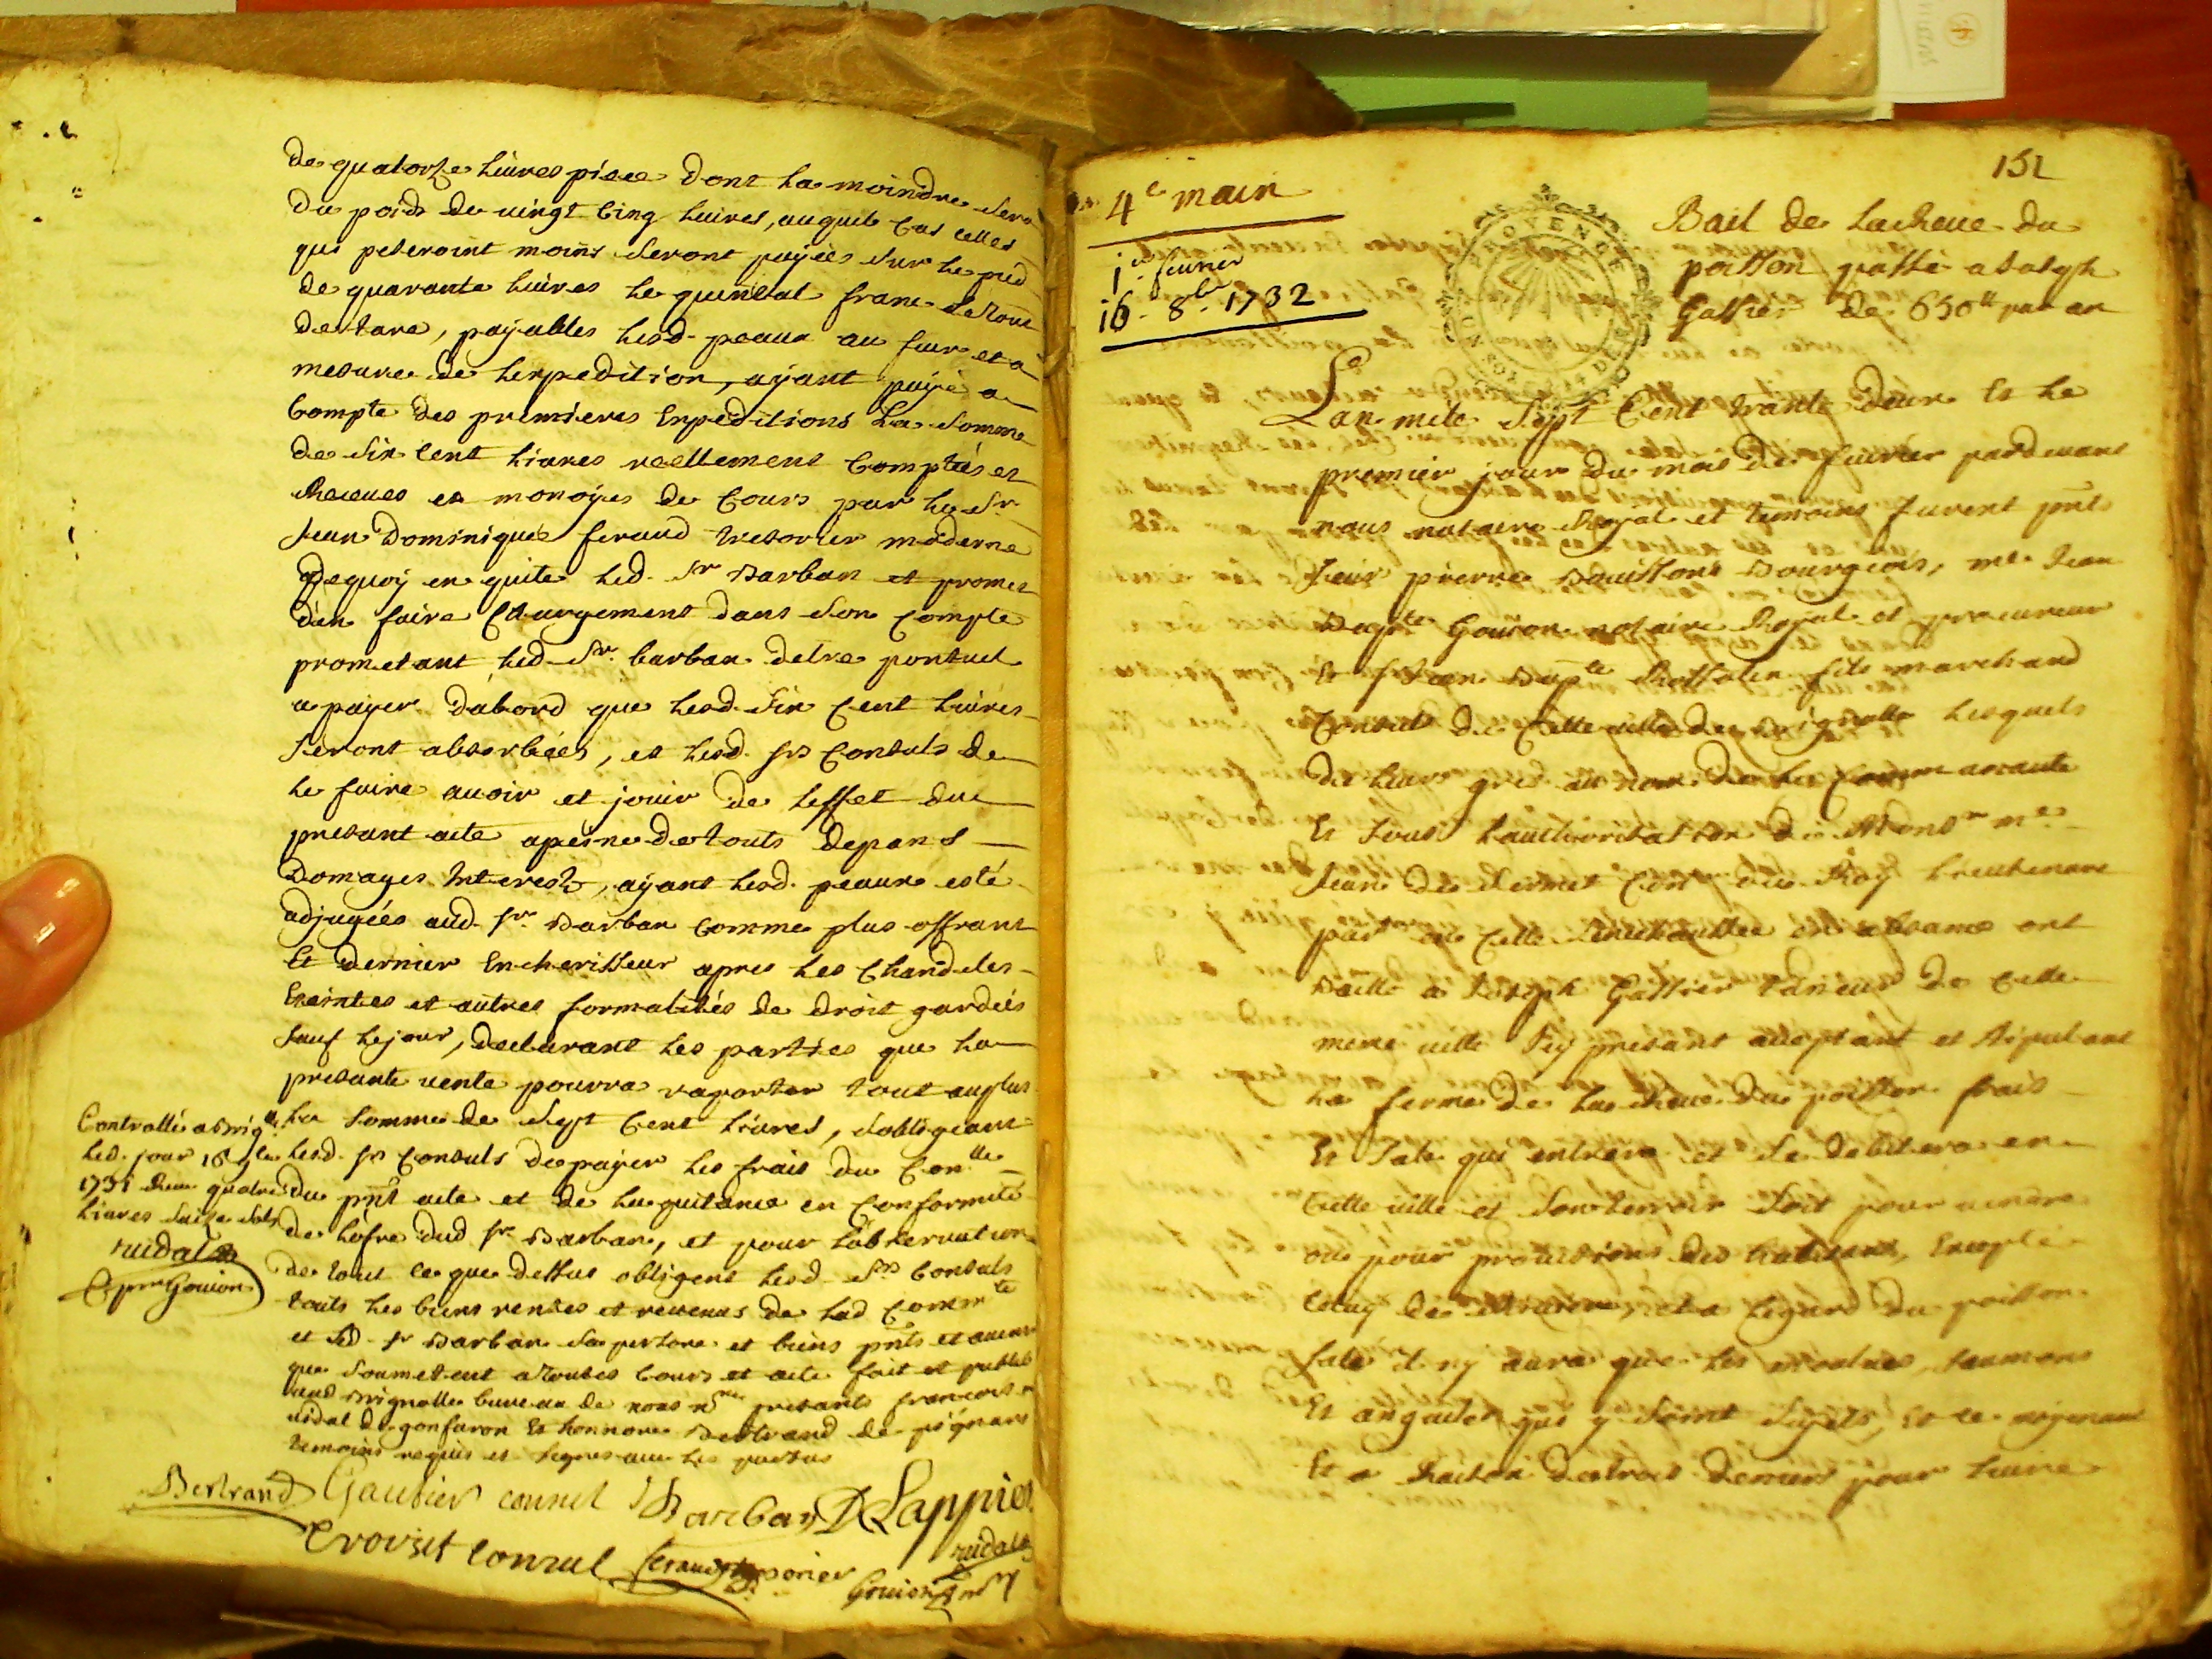 de quatorze livres piece dont la moindre sera
du poids de vingt cinq livres, auquel cas celles
qui peseroint moins seront payées sur le pied
de quarante livres le quinctal franc de tout
de tare, payables lesd. peaux au fur et a
mesure de lexpedition, ayant payé a
compte des premieres expeditions la somme
de six cent livres reellement comptées et
receues en monoyes de cours par le Sr
Jean Dominique feraud tresorier moderne
dequoy en quite led. Sr Barban et promet
den faire chargement dans son compte
prometant led. Sr. barban detre pontuel
a payer dabord que lesd. six cent livres
seront absorbées, et lesd. srs consuls de
le faire avoir et jouir de leffet du
presant acte a peine de touts depans
Domages Interests, ayant lesd. peaux esté
adjugées aud. sr. Barban comme plus offrant
Et dernier Encherisseur apres les chandeles
Eteintes et autres formalités de droit gardées
sauf lejour, declarant les parties que la
presante vente pourra raporter tout au plus
la somme de sept cent livres, sobligeant
lesd. srs consuls de payer les frais du Conlle
du pnt acte et de la quitance en conformité
de lofre dud sr. Barban, et pour lobservation
de tout ce que dessus obligent lesd. srs consuls
touts les biens rentes et revenus de lad Commte
et led. sr Barban sa persone et biens pnts et avenir
que soumetent a toutes cours et acte fait et publié
aud Brignolle bureau de nous nre presants francois
vidal de gonfaron Et honnoré Bertrand de pignans
temoins requis et signes avec les parties
Controllé a Briglle
led. jour 16 1731 Receu quatre
livres seize sols
vidal
Bertrand Gautier consul Barban D Lappier
Croviset consul feraud tresorier vidal
Gouion nre
4e main
1er fevrier
16. 8bre 1732
151
Bail de la Reve du
poisson passé a Joseph
Gassier de 650lt par an
PROVENCE
Lan mile sept cent trante deux Et le
premier jour du mois de fevrier pardevant
nous notaire Royal et temoins furent pnts
sieur pierre Bourgeois, me Jean
Bapte Gouion notaire Royal et procureur
Et sr Jean Bapte Rossolin fils marchand
Consuls de cette ville de Brignolle lesquels
de leurs gres au nom de la Communauté
Et sous lauthorisation de Monsr me
Jean de Conr du Roy Lieutenant
part en cette Senechaussée en absance ont
Baillé a Joseph Gassier taneur de cette
meme ville Icy presant aceptant et stipulant
la ferme de la Reve du poisson frais
Et salé qui entrera et se debitera en
cette ville et son terroir soit pour vendre
ou pour provisions des habitans, Excepté
celuy de riviere, et a legard du poisson
salé il ny aura que les molues, saumons
Et anguiles qui y soint sujets, Et ce moyenant
Et a Raison de trois deniers pour livre